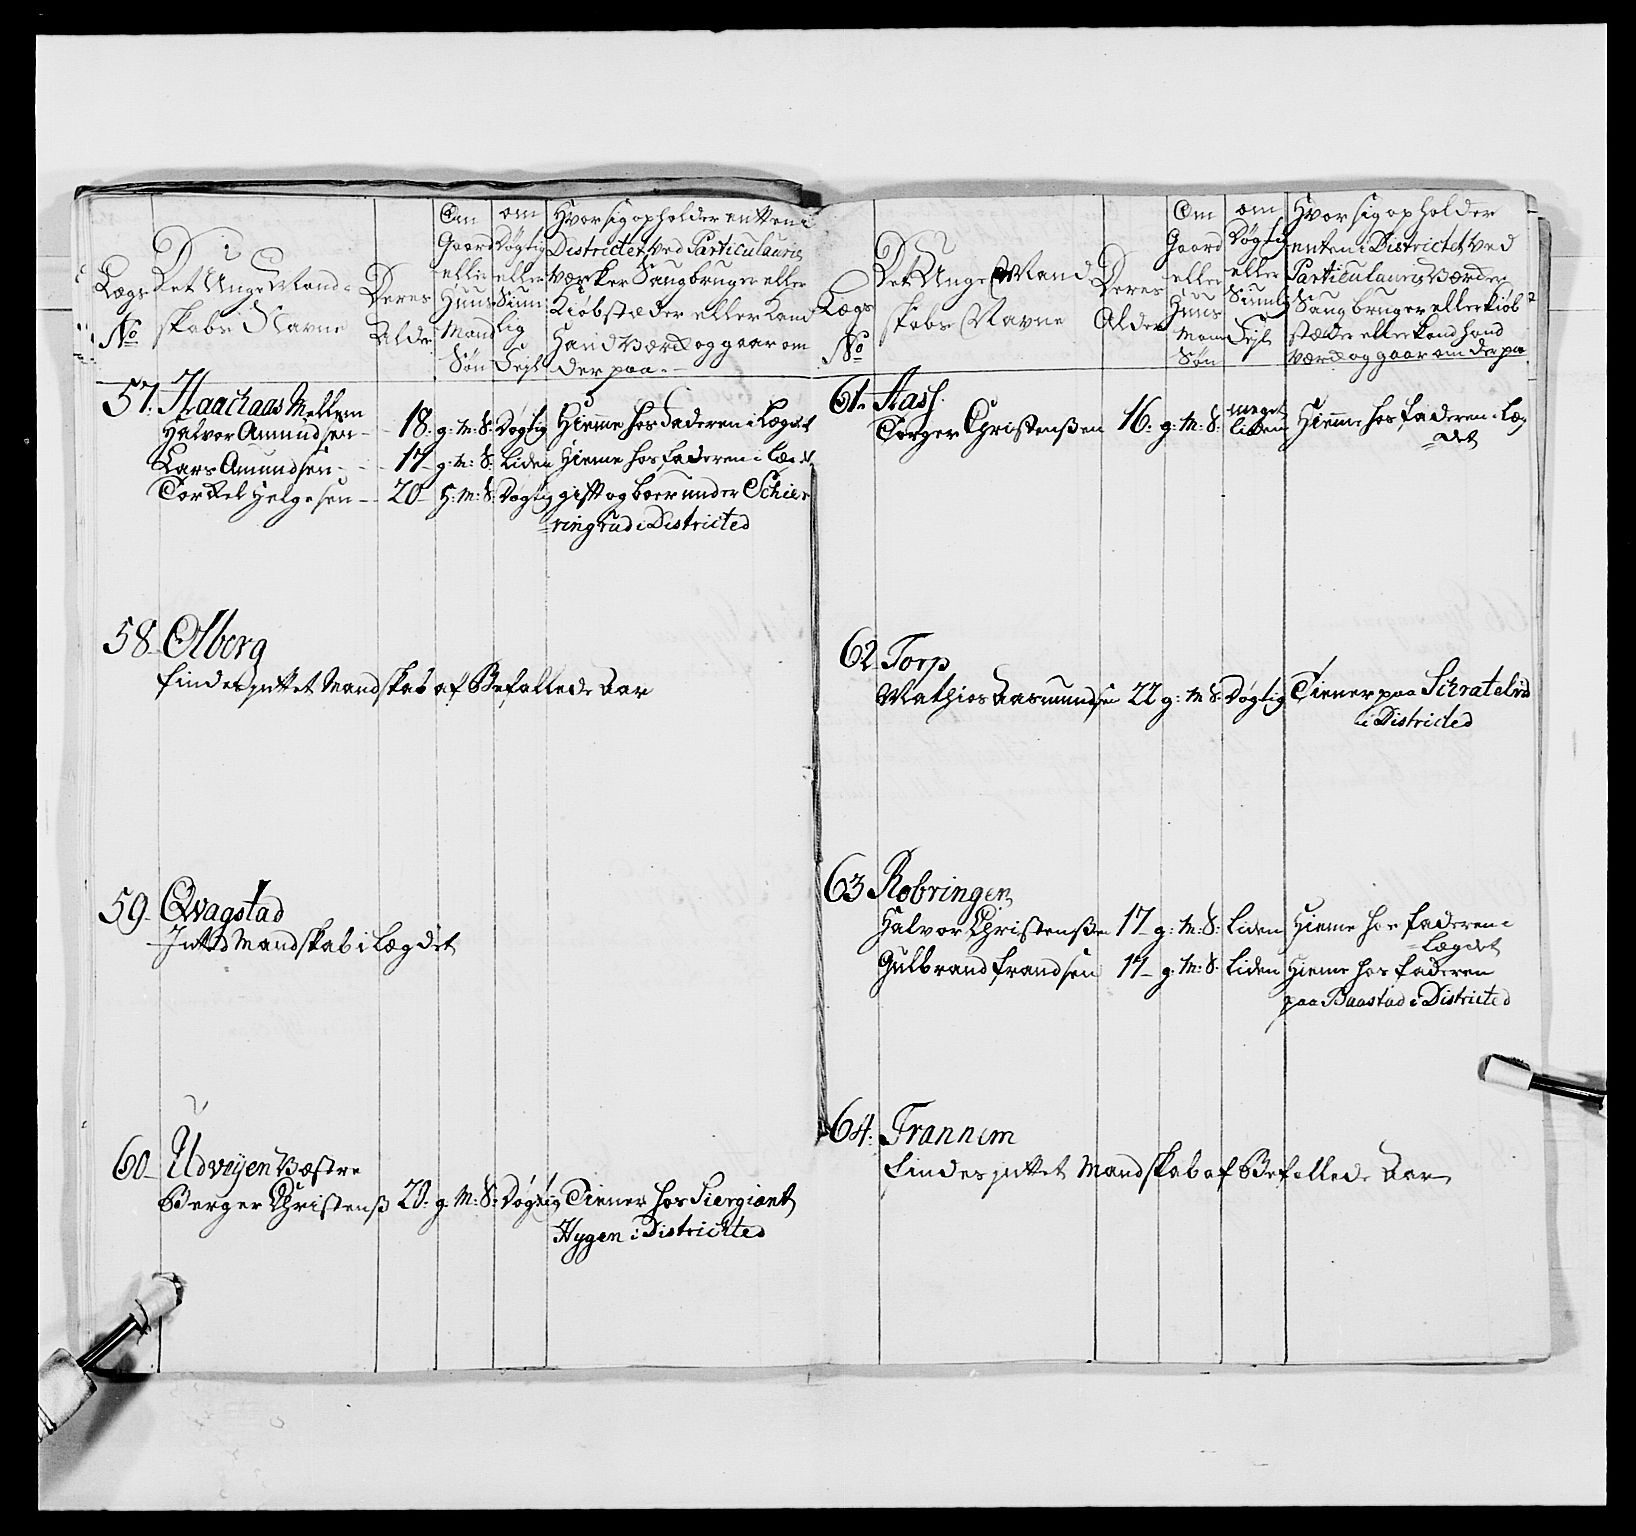 Lægs
No
Det Unge Mand-
skabs Navne
Deres
Alder
Om
Gaard
eller
Huus
Mand
Søn
om
Døgtig
eller
Siun
lig
Fejl
Hvor sig opholder entten i
Districtet ved Particulairis
Værker Saugbruger eller
Kiøbstæder eller kand
Handværk og gaar om
der paa.
57. Haackaas Mellem
Halvor Amundsen 18. g. M. S. Døgtig Hiemme hos Faderen i Lægdet
Lars Amundsen 17 g. M. S. Liden Hieme hos faderen i Lægd.
Torkel Helgesen 20 H. M. S. Døgtig gift og boer under Schie
ringrud i Districted
58 Olberg
findes intet Mandskab af Befallede Aar
59 Qvagstad
Intet Mandskab i Lægdet
60 Udvejen Væstre
Berger Christenß 20. g. M. S. Døgtig Tiener hos Siergiant
Hygen i Districhted
Lægs
No
Det Unge Mand
skabs Navne
Deres
Alder
Om
Gaard
eller
Huus
Mans
Søn
om
Døgtig
eller
Siunlig
Fejl
Hvor sig opholder
enten i Districtet ved
Particulairis Værcker
Saugbruger eller kiøb
stæder eller kand hand
værk og gaar om der paa
61. Aass.
Torger Christenßen 16. g. M. S. meget liden Hiemme hos faderen i Læg
det
62 Torp
Mathias Aasmundsen 22 g. M. S. Døgtig Tiener paa Schratelrud
i Districted
63 Robringen
Halvor Christenßen 17 g. M. S. Liden Hieme hos faderen i
Lægdet
Gulbrand frandsen 17 g. M. S. Liden Hieme hos faderen
paa Baastad i Districted
64. Frannem
Findes intet Mandskab af Befallede Aar